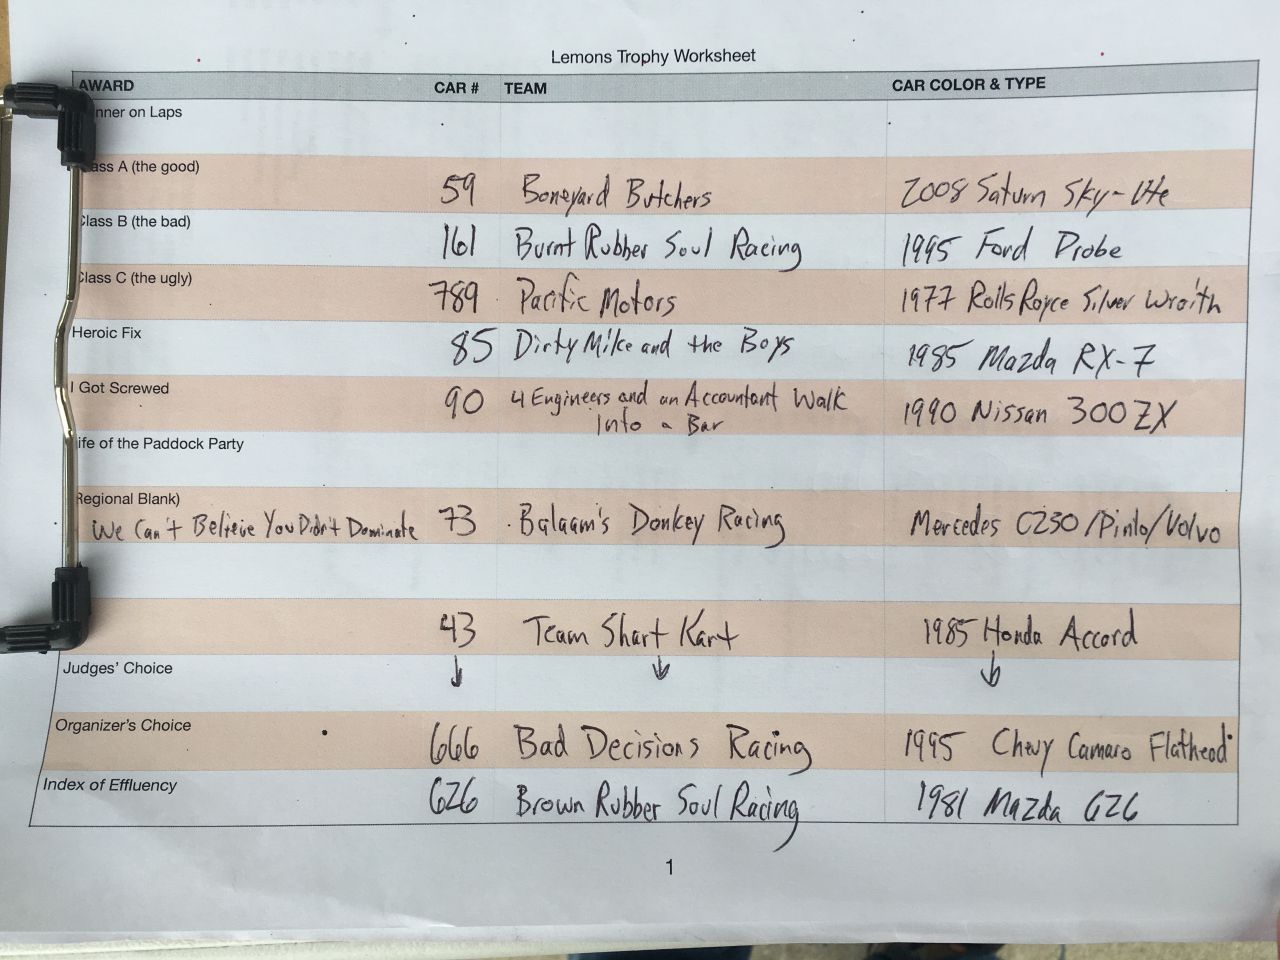 Lemons Trophy Worksheet
AWARD CAR # TEAM CAR COLOR & TYPE
nner on Laps
ass A (the good) 59 Boneyard Butchers 2008 Saturn Sky-lite
Class B (the bad) 161 Burnt Rubber Soul Racing 1995 Ford Probe
Class C (the ugly) 789 Pacific Motors 1977 Rolls Royce Silver Wraith
Heroic Fix 85 Dirty Mike and the Boys 1985 Mazda RX-7
I Got Screwed 90 4 Engineers and an Accountant Walk 1990 Nissan 300ZX
Into a Bar
ife of the Paddock Party
Regional Blank)
We Can't Believe You Didn't Dominate 73 Balaam's Donkey Racing Mercedes C230/Pinto/Volvo
43 Team Shart Kart 1985 Honda Accord
Judges' Choice ↓ ↓ ↓
Organizer's Choice 666 Bad Decisions Racing 1995 Chevy Camaro Flathead
Index of Effluency 626 Brown Rubber Soul Racing 1981 Mazda 626
1